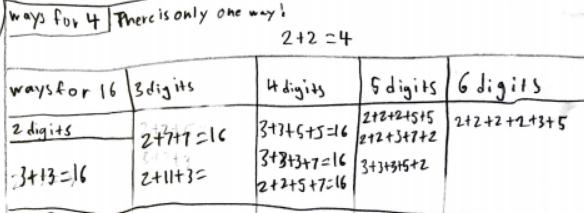 ways for 4 There is only one way!
2+2=4
ways for 16 3 digits 4 digits 5 digits 6 digits
2 digits
3+13=16
2+7+7=16
2+11+3=
3+3+5+5=16
3+3+3+7=16
2+2+5+7=16
2+2+2+5+5
2+2+3+7+2
3+3+3+5+2
2+2+2+2+3+5